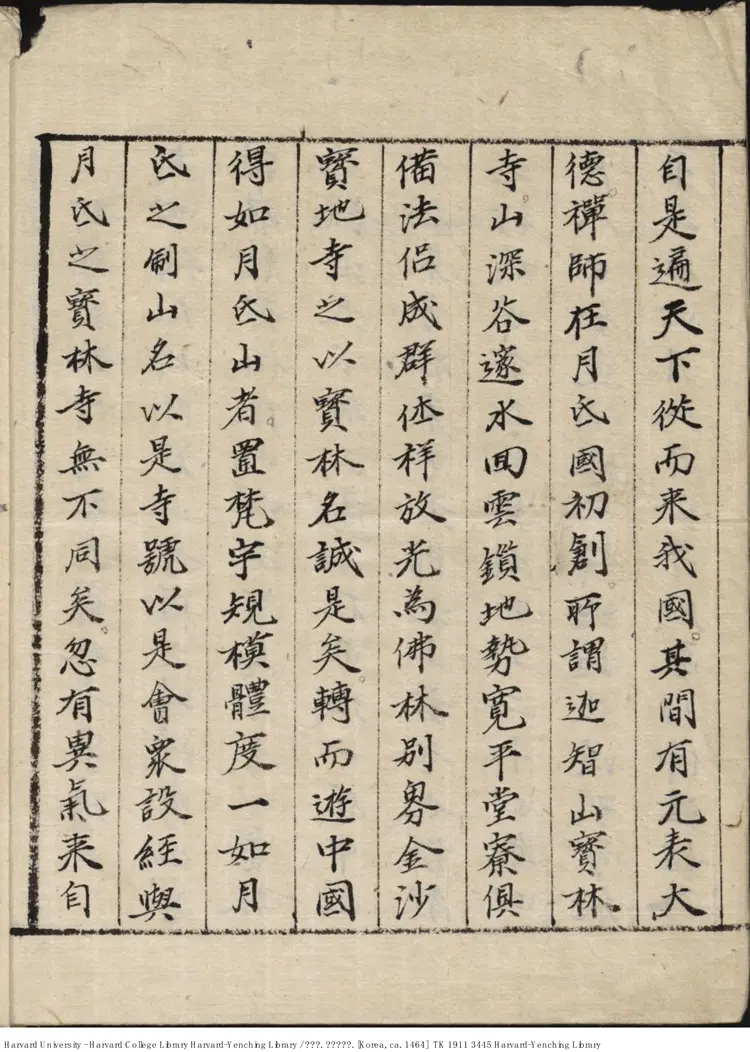 自是遍天下從而来我國其間有元表大
德禪師在月氏國初創所謂迦智山寶林
寺山深谷邃水回雲鎖地勢寬平堂寮俱
備法侣成群休祥放光為佛林別界金沙
寶地寺之以寶林名誠是矣轉而遊中國
得如月氏山者置梵宇規模體度一如月
氏之制山名以是寺號以是會衆設經與
月氏之寶林寺無不同矣忽有異氣来自
Harvard University - Harvard College Library Harvard-Yenching Library / ???. ?????. [Korea, ca. 1464] TK 1911 3445 Harvard-Yenching Library